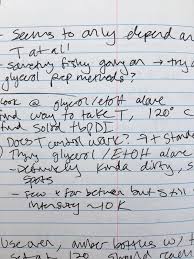 - Seems to only depend on
T at all
- something fishy going on → try o
glycerol prep methods?
Look @ glycerol/etOH alone
find way to take T, 120°C
find solid tBPDI
Does T control work?
Try glycerol / EtOH alone
- Definitely kinda dirty, s
spots
- Few & far between but still
intensity ~10K
Use over, amber bottles w/ t
set at 120